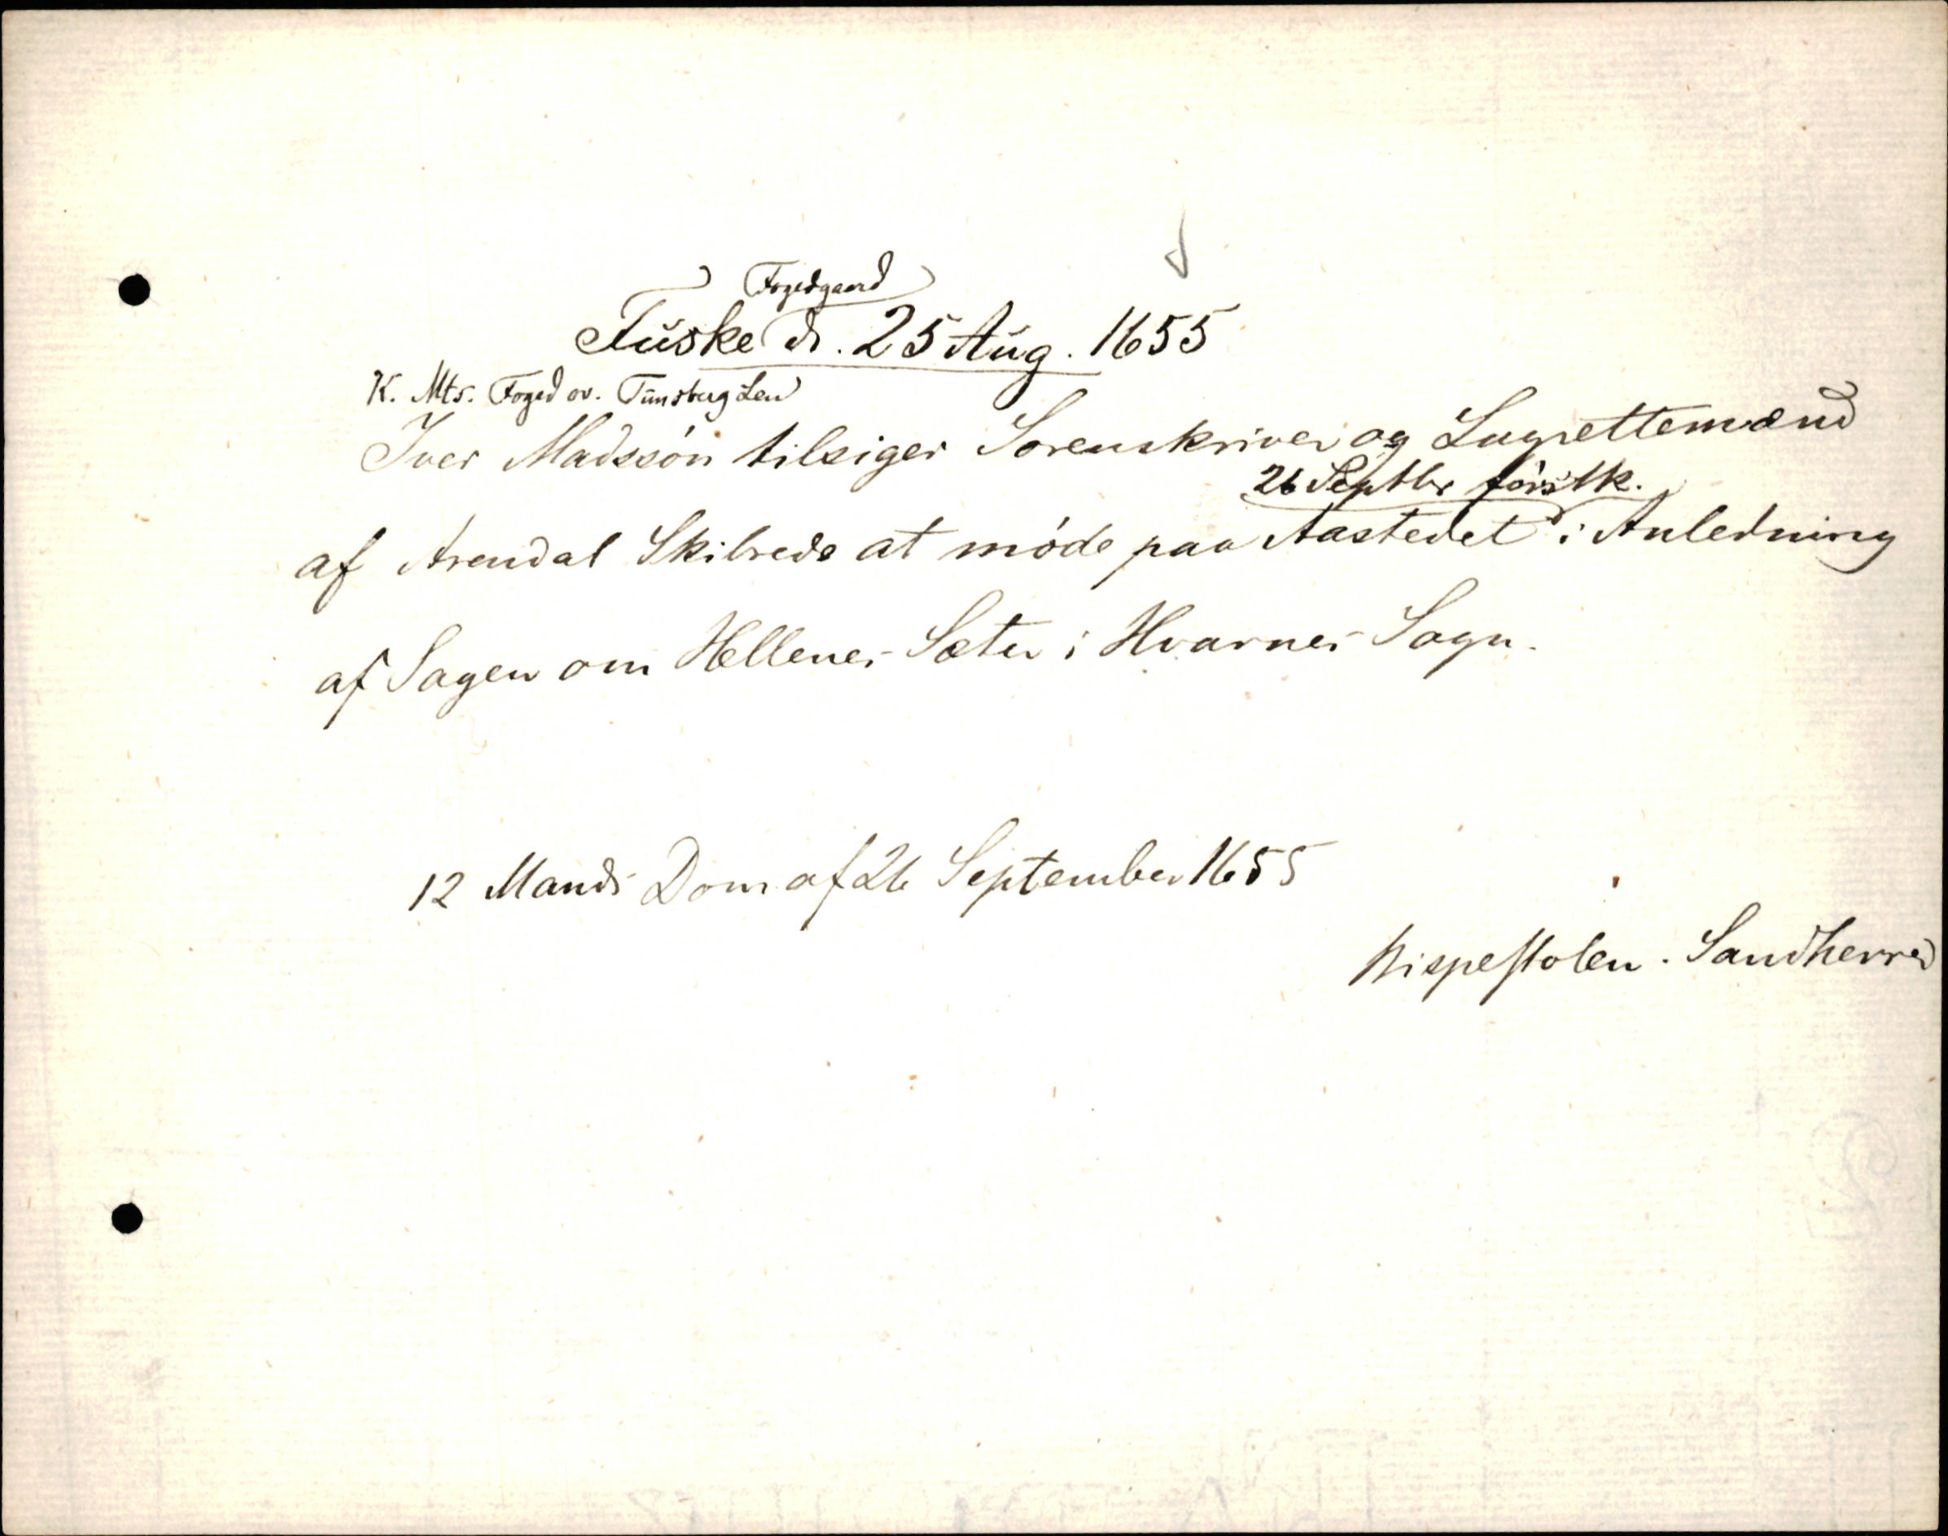 Fogedgaard
Tuske d. 25 Aug. 1655
K. Mts. Foged ov. Tunsberg Len
Iver Madssøn tilsiger Sorenskriver og Lagrettemænd
26 Septbr førstk.
af Arendal Skibrede at møde paa Aastedet i Anledning
af Sagen om Hellenes Sæter i Hvarnes Sogn.
12 Mands Dom af 26 September 1655
Bispestolen. Sandherred